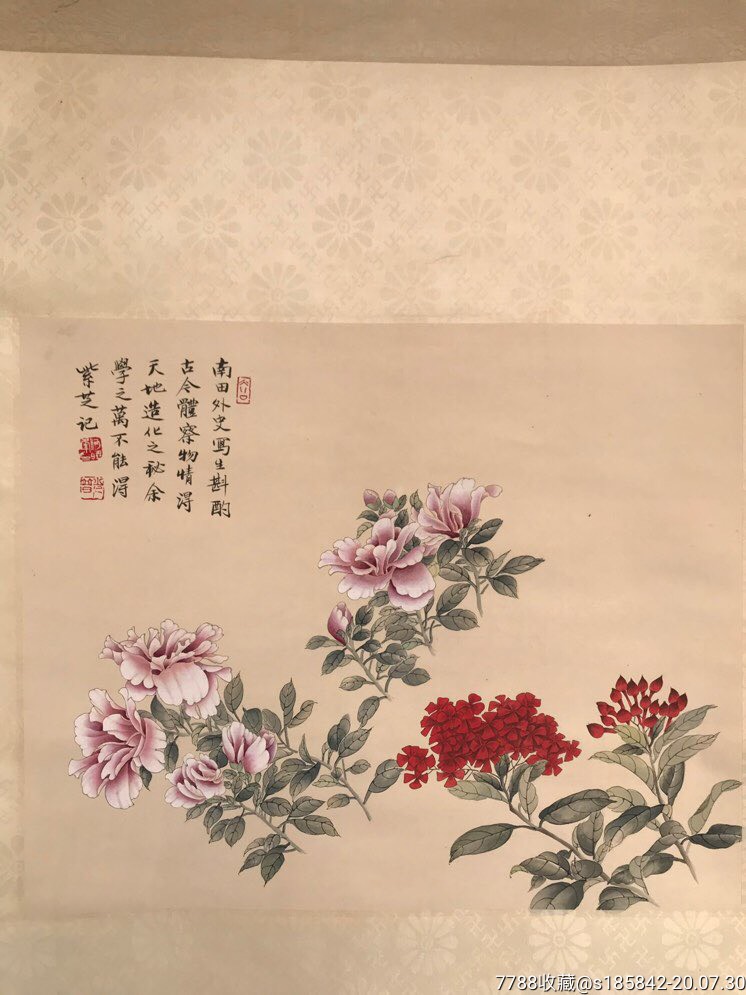 南田外史寫生斟酌
古今體察物情得
天地造化之秘余
學之萬不能得
紫芝记
7788收藏@s185842-20.07.30